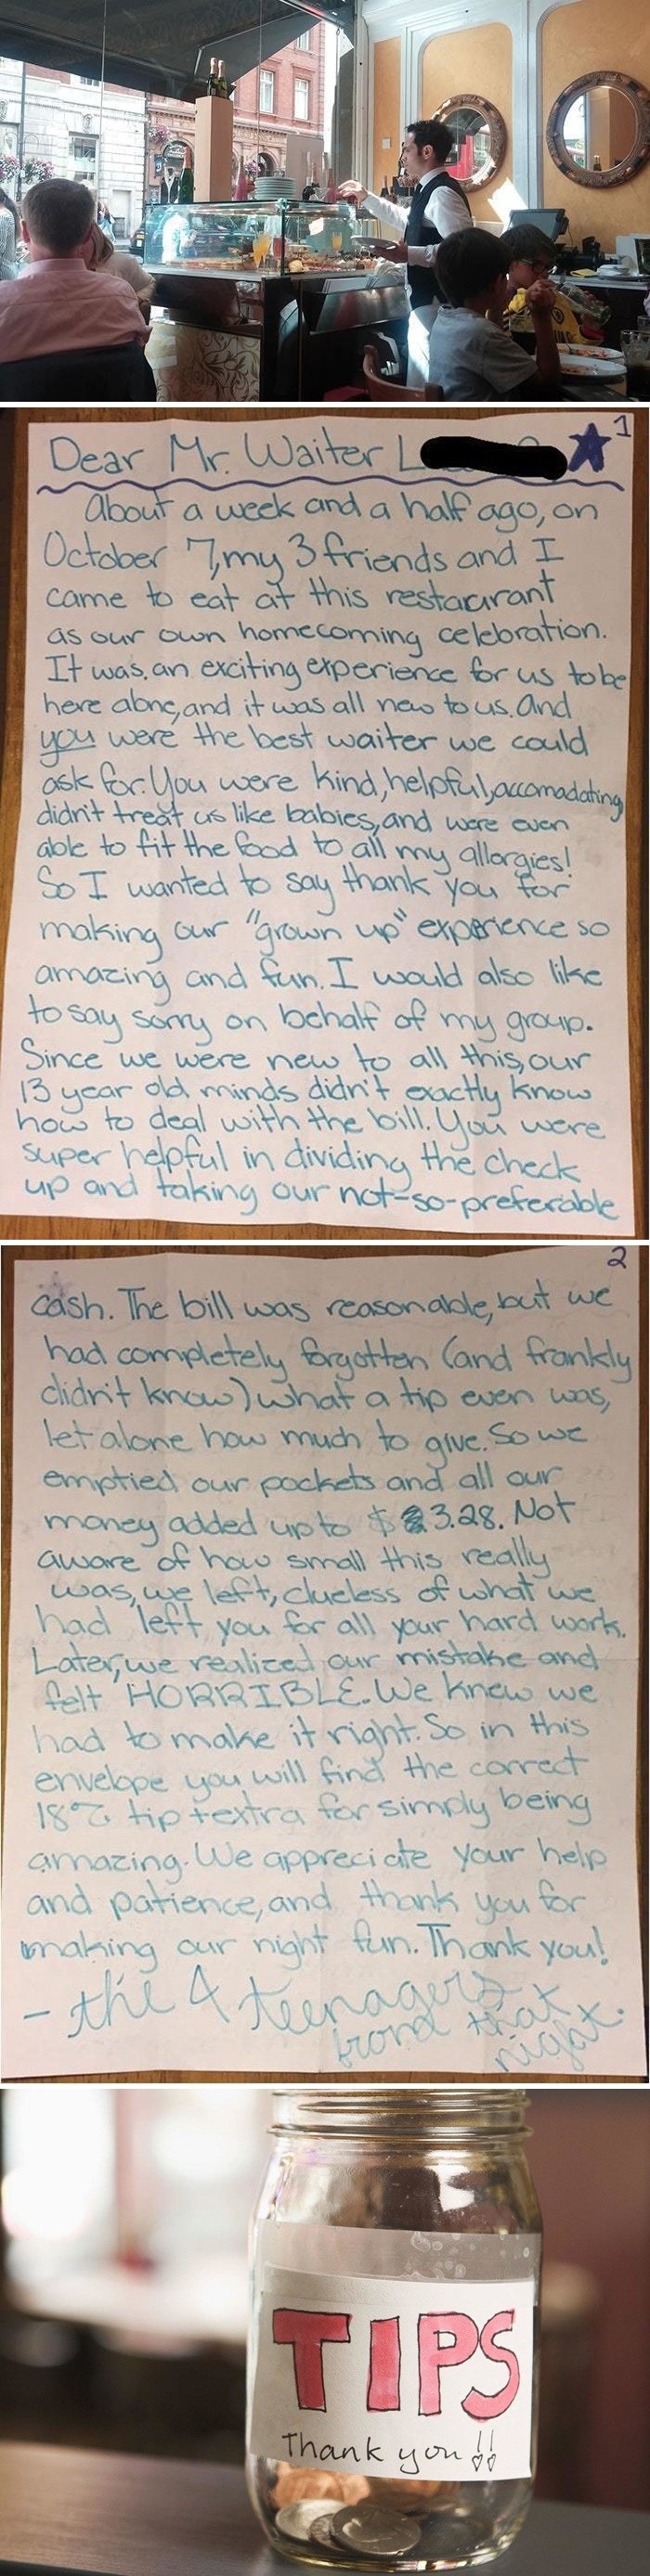 Dear Mr. Waiter L
1
About a week and a half ago, on
October 7, my 3 friends and I
came to eat at this restaurant
as our own homecoming celebration.
It was an exciting experience for us to be
here alone, and it was all new to us. And
you were the best waiter we could
ask for. You were kind, helpful, accomadating
didn't treat us like babies, and were even
able to fit the food to all my allergies!
So I wanted to say thank you for
making our "grown up" experience so
amazing and fun. I would also like
to say sorry on behalf of my group.
Since we were new to all this, our
13 year old minds didn't exactly know
how to deal with the bill. You were
super helpful in dividing the check
up and taking our not-so-preferable
2
cash. The bill was reasonable, but we
had completely forgotten (and frankly
didn't know) what a tip even was,
let alone how much to give. So we
emptied our pockets and all our
money added up to $3.28. Not
aware of how small this really
was, we left, clueless of what we
had left you for all your hard work.
Later, we realized our mistake and
felt HORRIBLE. We knew we
had to make it right. So in this
envelope you will find the correct
18% tip + extra for simply being
amazing. We appreciate your help
and patience, and thank you for
making our night fun. Thank you!
- the 4 teenagers
from that
night.
TIPS
Thank you!!